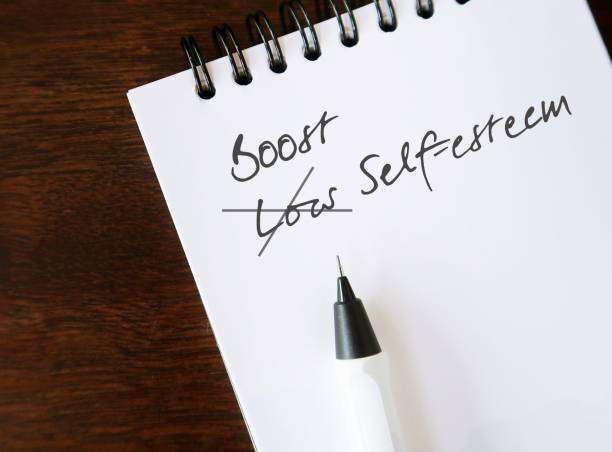 Boost
Low Self-esteem